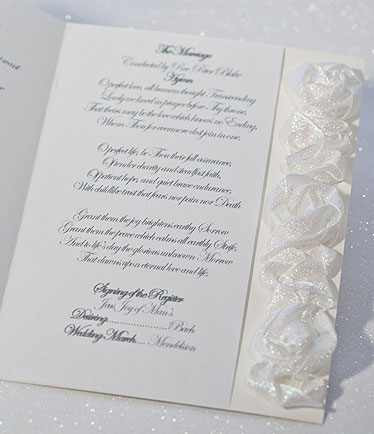 The Marriage
Conducted by Rev Peter Blake
Hymn
O perfect love, all human thought Transcending
Lowly we kneel in prayer before Thy throne,
That theirs may be the love which knows no Ending,
Whom Thou for evermore dost join in one.
O perfect life, be Thou their full assurance,
Of tender charity and steadfast faith,
Of patient hope, and quiet brave endurance,
With childlike trust that fears nor pain nor Death.
Grant them the joy brightens earthy Sorrow
Grant them the peace which calms all earthly Strife,
And to life's day the glorious unknown Morrow
That dawns upon eternal love and life.
Signing of the Register
Jesu, Joy of Man's
Desiring Bach
Wedding March Mendelson